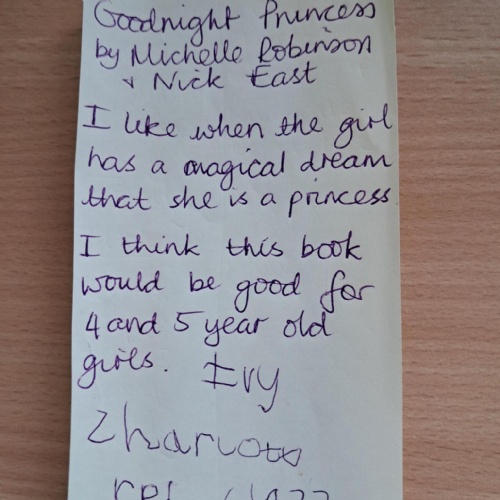 Goodnight Princess
by Michelle Robinson
+ Nick East
I like when the girl
has a magical dream
that she is a princess
I think this book
would be good for
4 and 5 year old
girls. Ivy